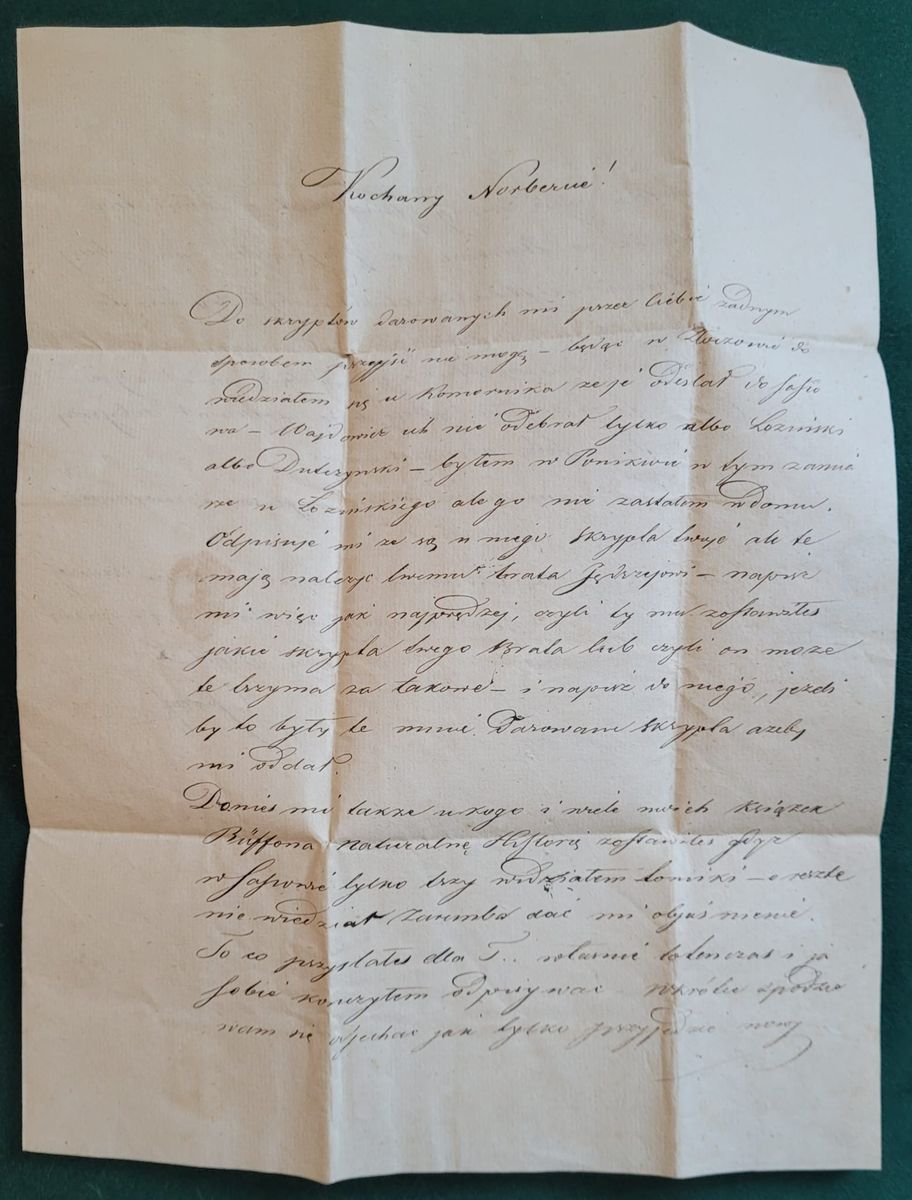 Kochany Norbercie!
Do skryptów darowanych mi przez Ciebie żadnym
sposobem przyjść nie mogę – będąc w Złoczowie do
wiedziałem się u Komornika że je odesłał do Sasso
wa – Wajdowicz ich nie odebrał tylko albo Łoziński
albo – byłem w Ponikwie w tym zamia
rze u Łozińskiego ale go nie zastałem w domu.
Odpisuje mi że są u niego skrypta twoje ale te
mają należyć twemu brata Jędrzejowi – napisz
mi więc jak najprędzej, czyli ty mu zostawiłeś
jakie skrypta twego Brata lub czyli on może
te trzyma za takowe – i napisz do niego, jeżeli
by to były te mnie darowane skrypta ażeby
mi oddał.
Donieś mi także u kogo i wiele moich książek
Büffona naturalnę Historię zostawiłeś gdyż
w Sassowie tylko trzy widziałem tomiki – o reszte
nie wiedział Zaremba dać mi objaśnienie.
To co przysłałeś dla T.. właśnie totenczas i ja
sobie kończyłem odpisywać wkrótce spodzie
wam się odjechać jak tylko przyjedzie nowy